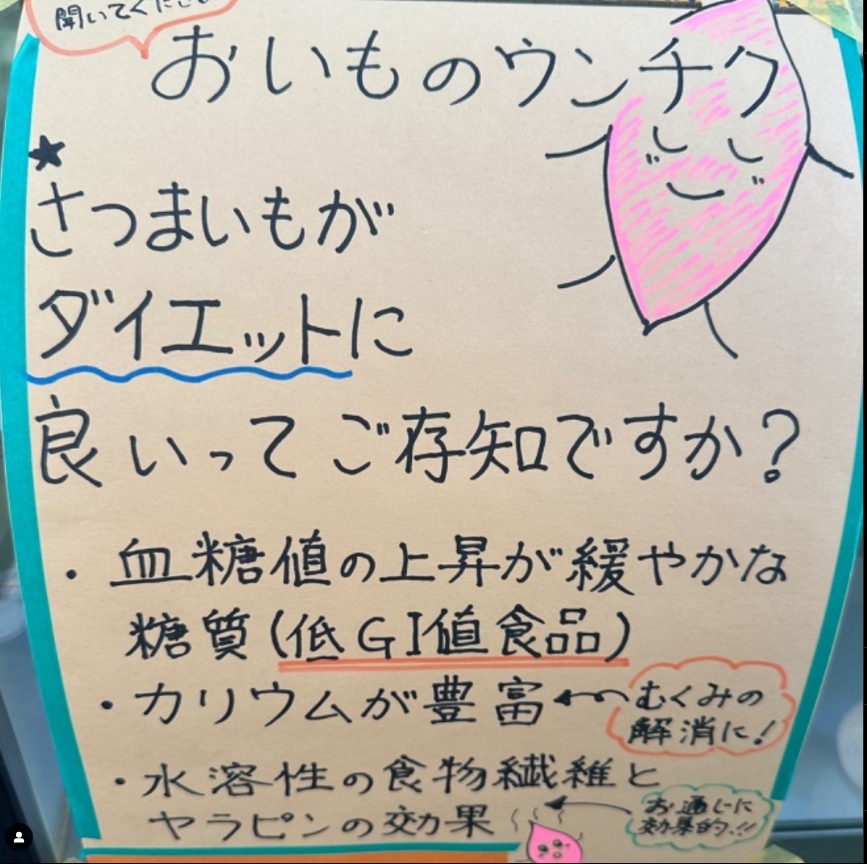 聞いてください
おいものウンチク
★
さつまいもが
ダイエットに
良いってご存知ですか？
・血糖値の上昇が緩やかな
糖質(低GI値食品)
・カリウムが豊富
むくみの
解消に!
・水溶性の食物繊維と
ヤラピンの効果
お通じに
効果的!!